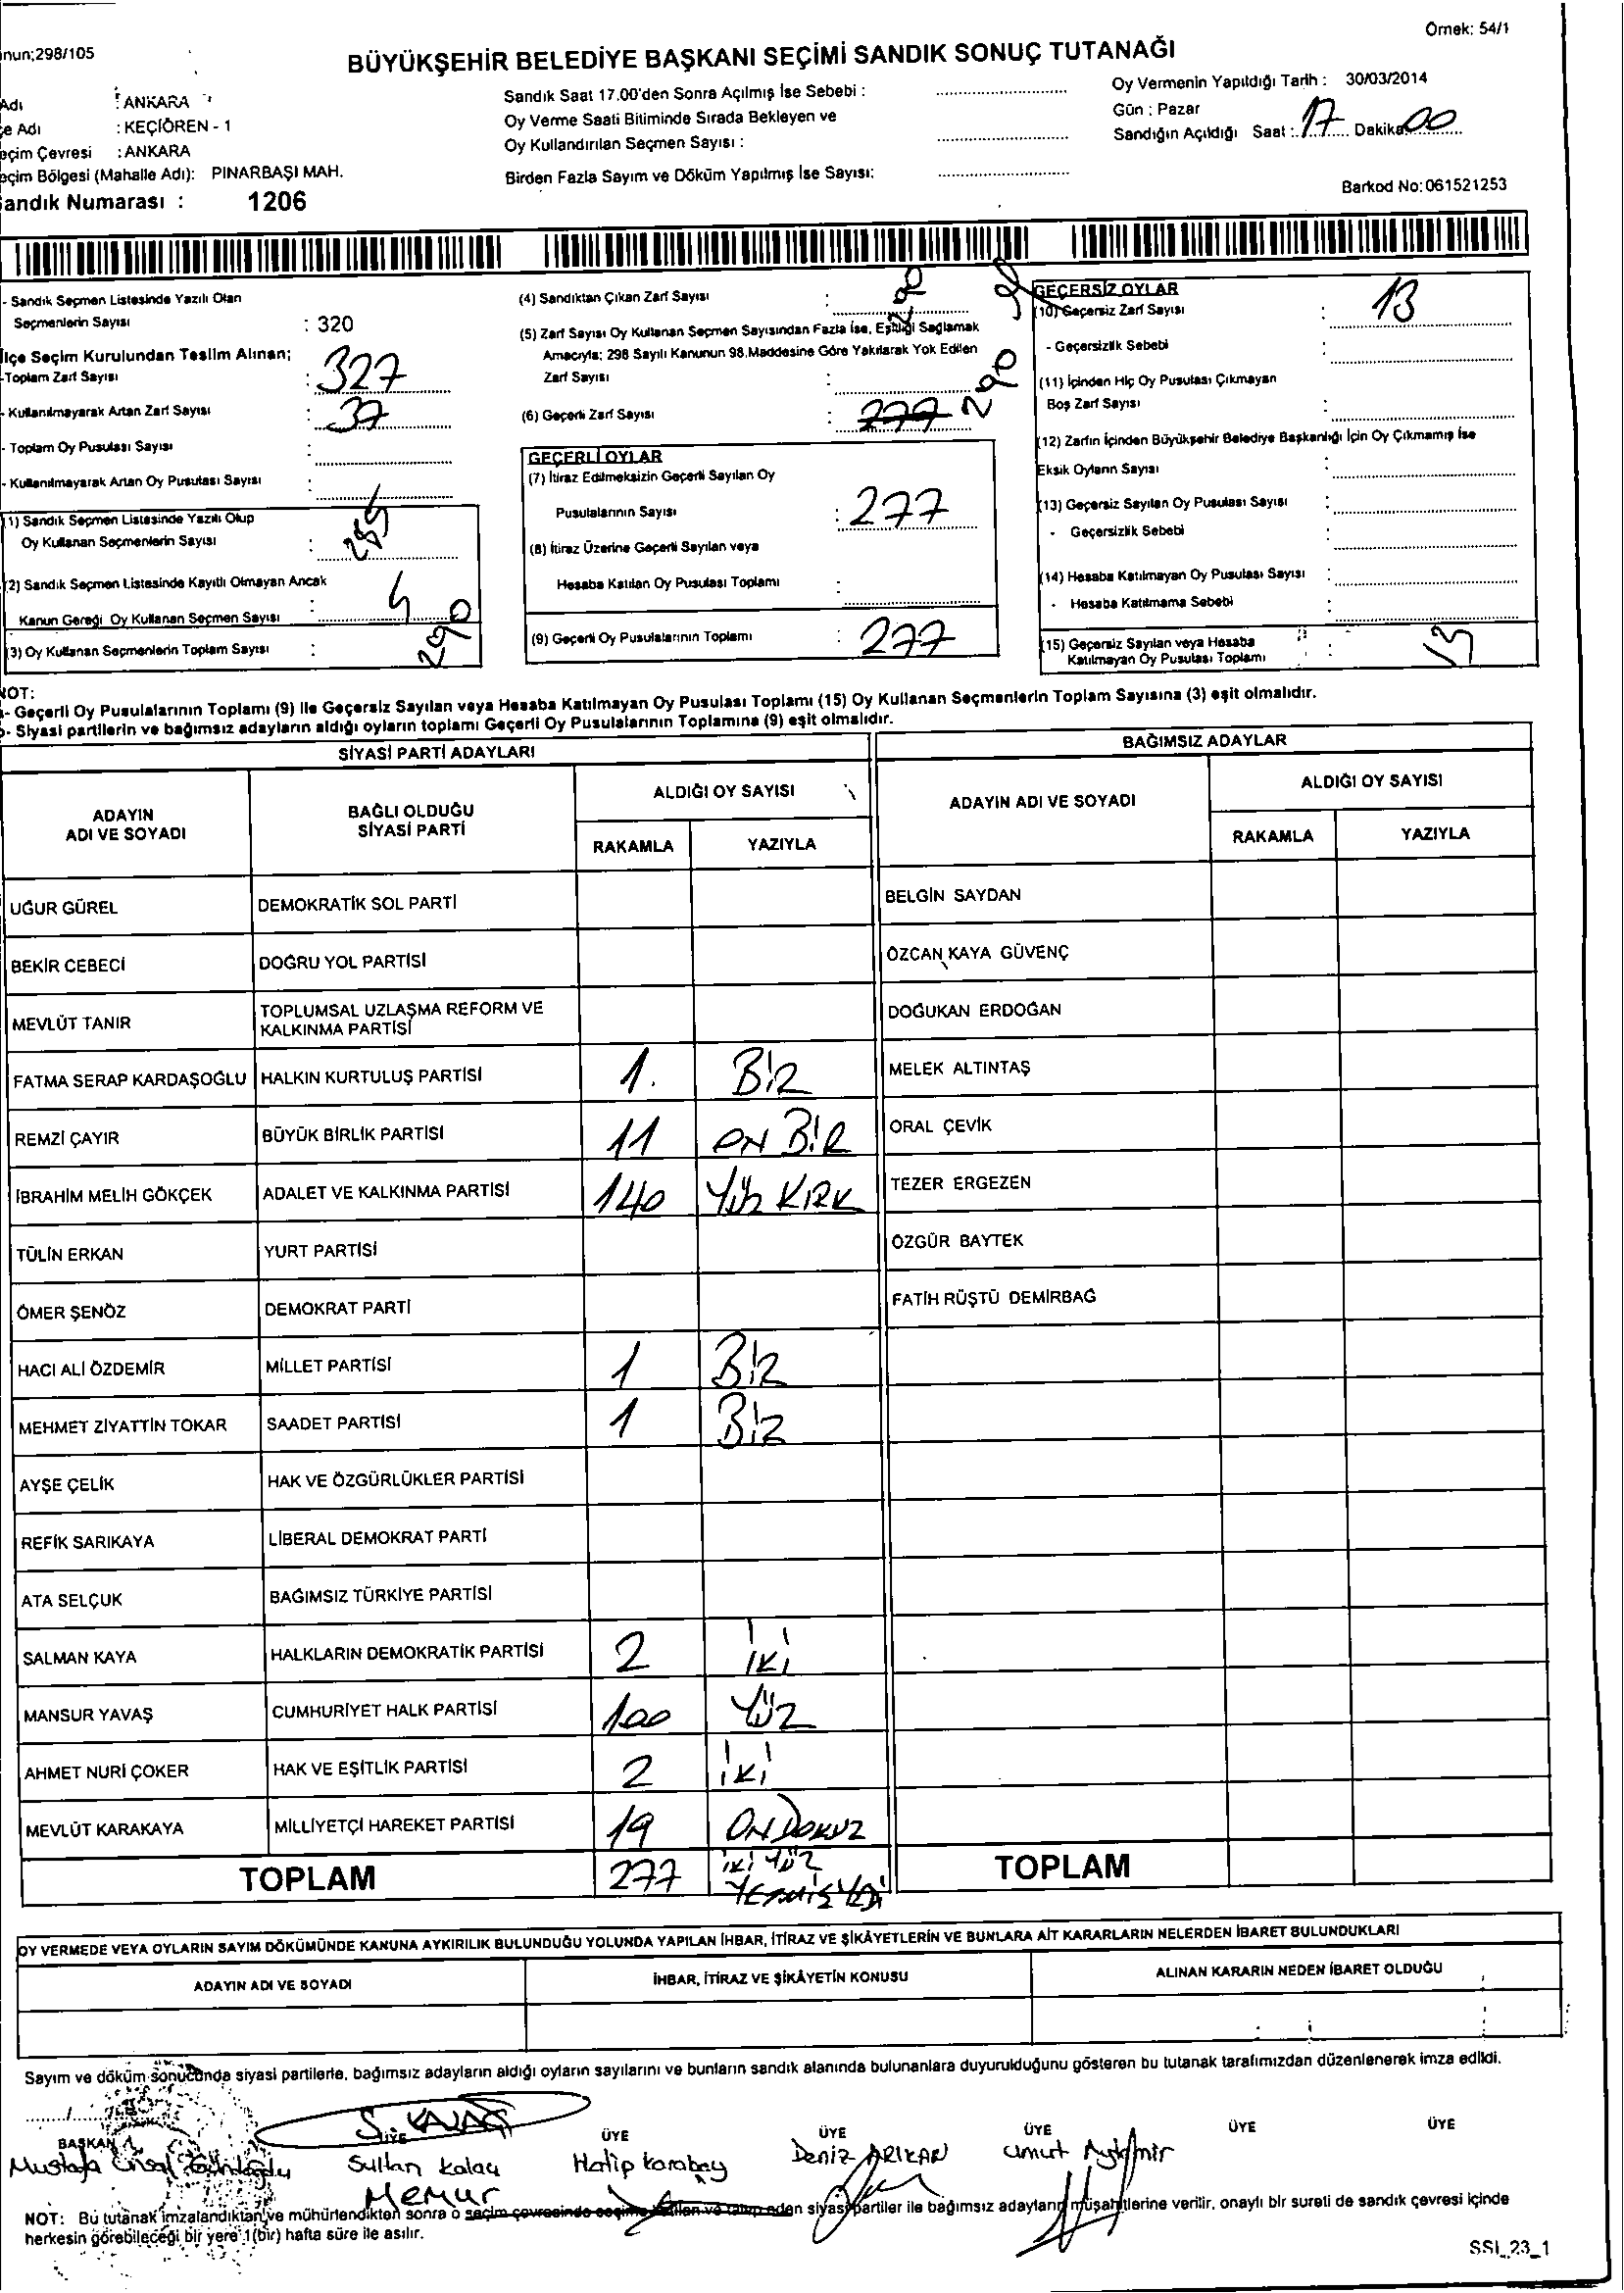 Örnek: 54/1
nun;298/105
BÜYÜKŞEHİR BELEDİYE BAŞKANI SEÇİMİ SANDIK SONUÇ TUTANAĞI
Adı : ANKARA
çe Adı : KEÇİÖREN - 1
eçim Çevresi : ANKARA
eçim Bölgesi (Mahalle Adı): PINARBAŞI MAH.
andık Numarası : 1206
Sandık Saat 17.00'den Sonra Açılmış İse Sebebi :
Oy Verme Saati Bitiminde Sırada Bekleyen ve
Oy Kullandırılan Seçmen Sayısı :
Birden Fazla Sayım ve Döküm Yapılmış İse Sayısı:
Oy Vermenin Yapıldığı Tarih : 30/03/2014
Gün : Pazar
Sandığın Açıldığı Saat : 17 Dakika 00
Barkod No: 061521253
- Sandık Seçmen Listesinde Yazılı Olan
Seçmenlerin Sayısı : 320
İlçe Seçim Kurulundan Teslim Alınan;
-Toplam Zarf Sayısı : 327
- Kullanılmayarak Artan Zarf Sayısı : 37
- Toplam Oy Pusulası Sayısı :
- Kullanılmayarak Artan Oy Pusulası Sayısı :
(1) Sandık Seçmen Listesinde Yazılı Olup
Oy Kullanan Seçmenlerin Sayısı :
(2) Sandık Seçmen Listesinde Kayıtlı Olmayan Ancak
Kanun Gereği Oy Kullanan Seçmen Sayısı :
(3) Oy Kullanan Seçmenlerin Toplam Sayısı : 290
(4) Sandıktan Çıkan Zarf Sayısı : 290
(5) Zarf Sayısı Oy Kullanan Seçmen Sayısından Fazla İse, Eşitliği Sağlamak
Amacıyla; 298 Sayılı Kanunun 98.Maddesine Göre Yakılarak Yok Edilen
Zarf Sayısı :
(6) Geçerli Zarf Sayısı : 277 290
GEÇERLİ OYLAR
(7) İtiraz Edilmeksizin Geçerli Sayılan Oy
Pusulalarının Sayısı : 277
(8) İtiraz Üzerine Geçerli Sayılan veya
Hesaba Katılan Oy Pusulası Toplamı :
(9) Geçerli Oy Pusulalarının Toplamı : 277
GEÇERSİZ OYLAR
(10) Geçersiz Zarf Sayısı : 13
- Geçersizlik Sebebi :
(11) İçinden Hiç Oy Pusulası Çıkmayan
Boş Zarf Sayısı :
(12) Zarfın İçinden Büyükşehir Belediye Başkanlığı İçin Oy Çıkmamış İse
Eksik Oyların Sayısı :
(13) Geçersiz Sayılan Oy Pusulası Sayısı :
- Geçersizlik Sebebi :
(14) Hesaba Katılmayan Oy Pusulası Sayısı :
- Hesaba Katılmama Sebebi :
(15) Geçersiz Sayılan veya Hesaba
Katılmayan Oy Pusulası Toplamı : 13
NOT:
- Geçerli Oy Pusulalarının Toplamı (9) ile Geçersiz Sayılan veya Hesaba Katılmayan Oy Pusulası Toplamı (15) Oy Kullanan Seçmenlerin Toplam Sayısına (3) eşit olmalıdır.
- Siyasi partilerin ve bağımsız adayların aldığı oyların toplamı Geçerli Oy Pusulalarının Toplamına (9) eşit olmalıdır.
SİYASİ PARTİ ADAYLARI BAĞIMSIZ ADAYLAR
ADAYIN ADI VE SOYADI BAĞLI OLDUĞU SİYASİ PARTİ ALDIĞI OY SAYISI ADAYIN ADI VE SOYADI ALDIĞI OY SAYISI
RAKAMLA YAZIYLA RAKAMLA YAZIYLA
UĞUR GÜREL DEMOKRATİK SOL PARTİ BELGİN SAYDAN
BEKİR CEBECİ DOĞRU YOL PARTİSİ ÖZCAN KAYA GÜVENÇ
MEVLÜT TANIR TOPLUMSAL UZLAŞMA REFORM VE KALKINMA PARTİSİ DOĞUKAN ERDOĞAN
FATMA SERAP KARDAŞOĞLU HALKIN KURTULUŞ PARTİSİ 1. BİR MELEK ALTINTAŞ
REMZİ ÇAYIR BÜYÜK BİRLİK PARTİSİ 11 ON BİR ORAL ÇEVİK
İBRAHİM MELİH GÖKÇEK ADALET VE KALKINMA PARTİSİ 140 YÜZ KIRK TEZER ERGEZEN
TÜLİN ERKAN YURT PARTİSİ ÖZGÜR BAYTEK
ÖMER ŞENÖZ DEMOKRAT PARTİ FATİH RÜŞTÜ DEMİRBAĞ
HACI ALİ ÖZDEMİR MİLLET PARTİSİ 1 BİR
MEHMET ZİYATTİN TOKAR SAADET PARTİSİ 1 BİR
AYŞE ÇELİK HAK VE ÖZGÜRLÜKLER PARTİSİ
REFİK SARIKAYA LİBERAL DEMOKRAT PARTİ
ATA SELÇUK BAĞIMSIZ TÜRKİYE PARTİSİ
SALMAN KAYA HALKLARIN DEMOKRATİK PARTİSİ 2 İKİ
MANSUR YAVAŞ CUMHURİYET HALK PARTİSİ 100 YÜZ
AHMET NURİ ÇOKER HAK VE EŞİTLİK PARTİSİ 2 İKİ
MEVLÜT KARAKAYA MİLLİYETÇİ HAREKET PARTİSİ 19 ON DOKUZ
TOPLAM 277 İKİ YÜZ YETMİŞ YEDİ TOPLAM
OY VERMEDE VEYA OYLARIN SAYIM DÖKÜMÜNDE KANUNA AYKIRILIK BULUNDUĞU YOLUNDA YAPILAN İHBAR, İTİRAZ VE ŞİKÂYETLERİN VE BUNLARA AİT KARARLARIN NELERDEN İBARET BULUNDUKLARI
ADAYIN ADI VE SOYADI İHBAR, İTİRAZ VE ŞİKÂYETİN KONUSU ALINAN KARARIN NEDEN İBARET OLDUĞU
Sayım ve döküm sonucunda siyasi partilerle, bağımsız adayların aldığı oyların sayılarını ve bunların sandık alanında bulunanlara duyurulduğunu gösteren bu tutanak tarafımızdan düzenlenerek imza edildi.
BAŞKAN ÜYE ÜYE ÜYE ÜYE ÜYE ÜYE
Mustafa Sultan Kalaç Hatip Karabey Deniz ARIKAN Umut
Memur
NOT: Bu tutanak imzalandıktan ve mühürlendikten sonra o seçim çevresinde seçime katılan ve talep eden siyasi partiler ile bağımsız adayların müşahitlerine verilir, onaylı bir sureti de sandık çevresi içinde
herkesin görebileceği bir yere 1(bir) hafta süre ile asılır.
SSI_23_1